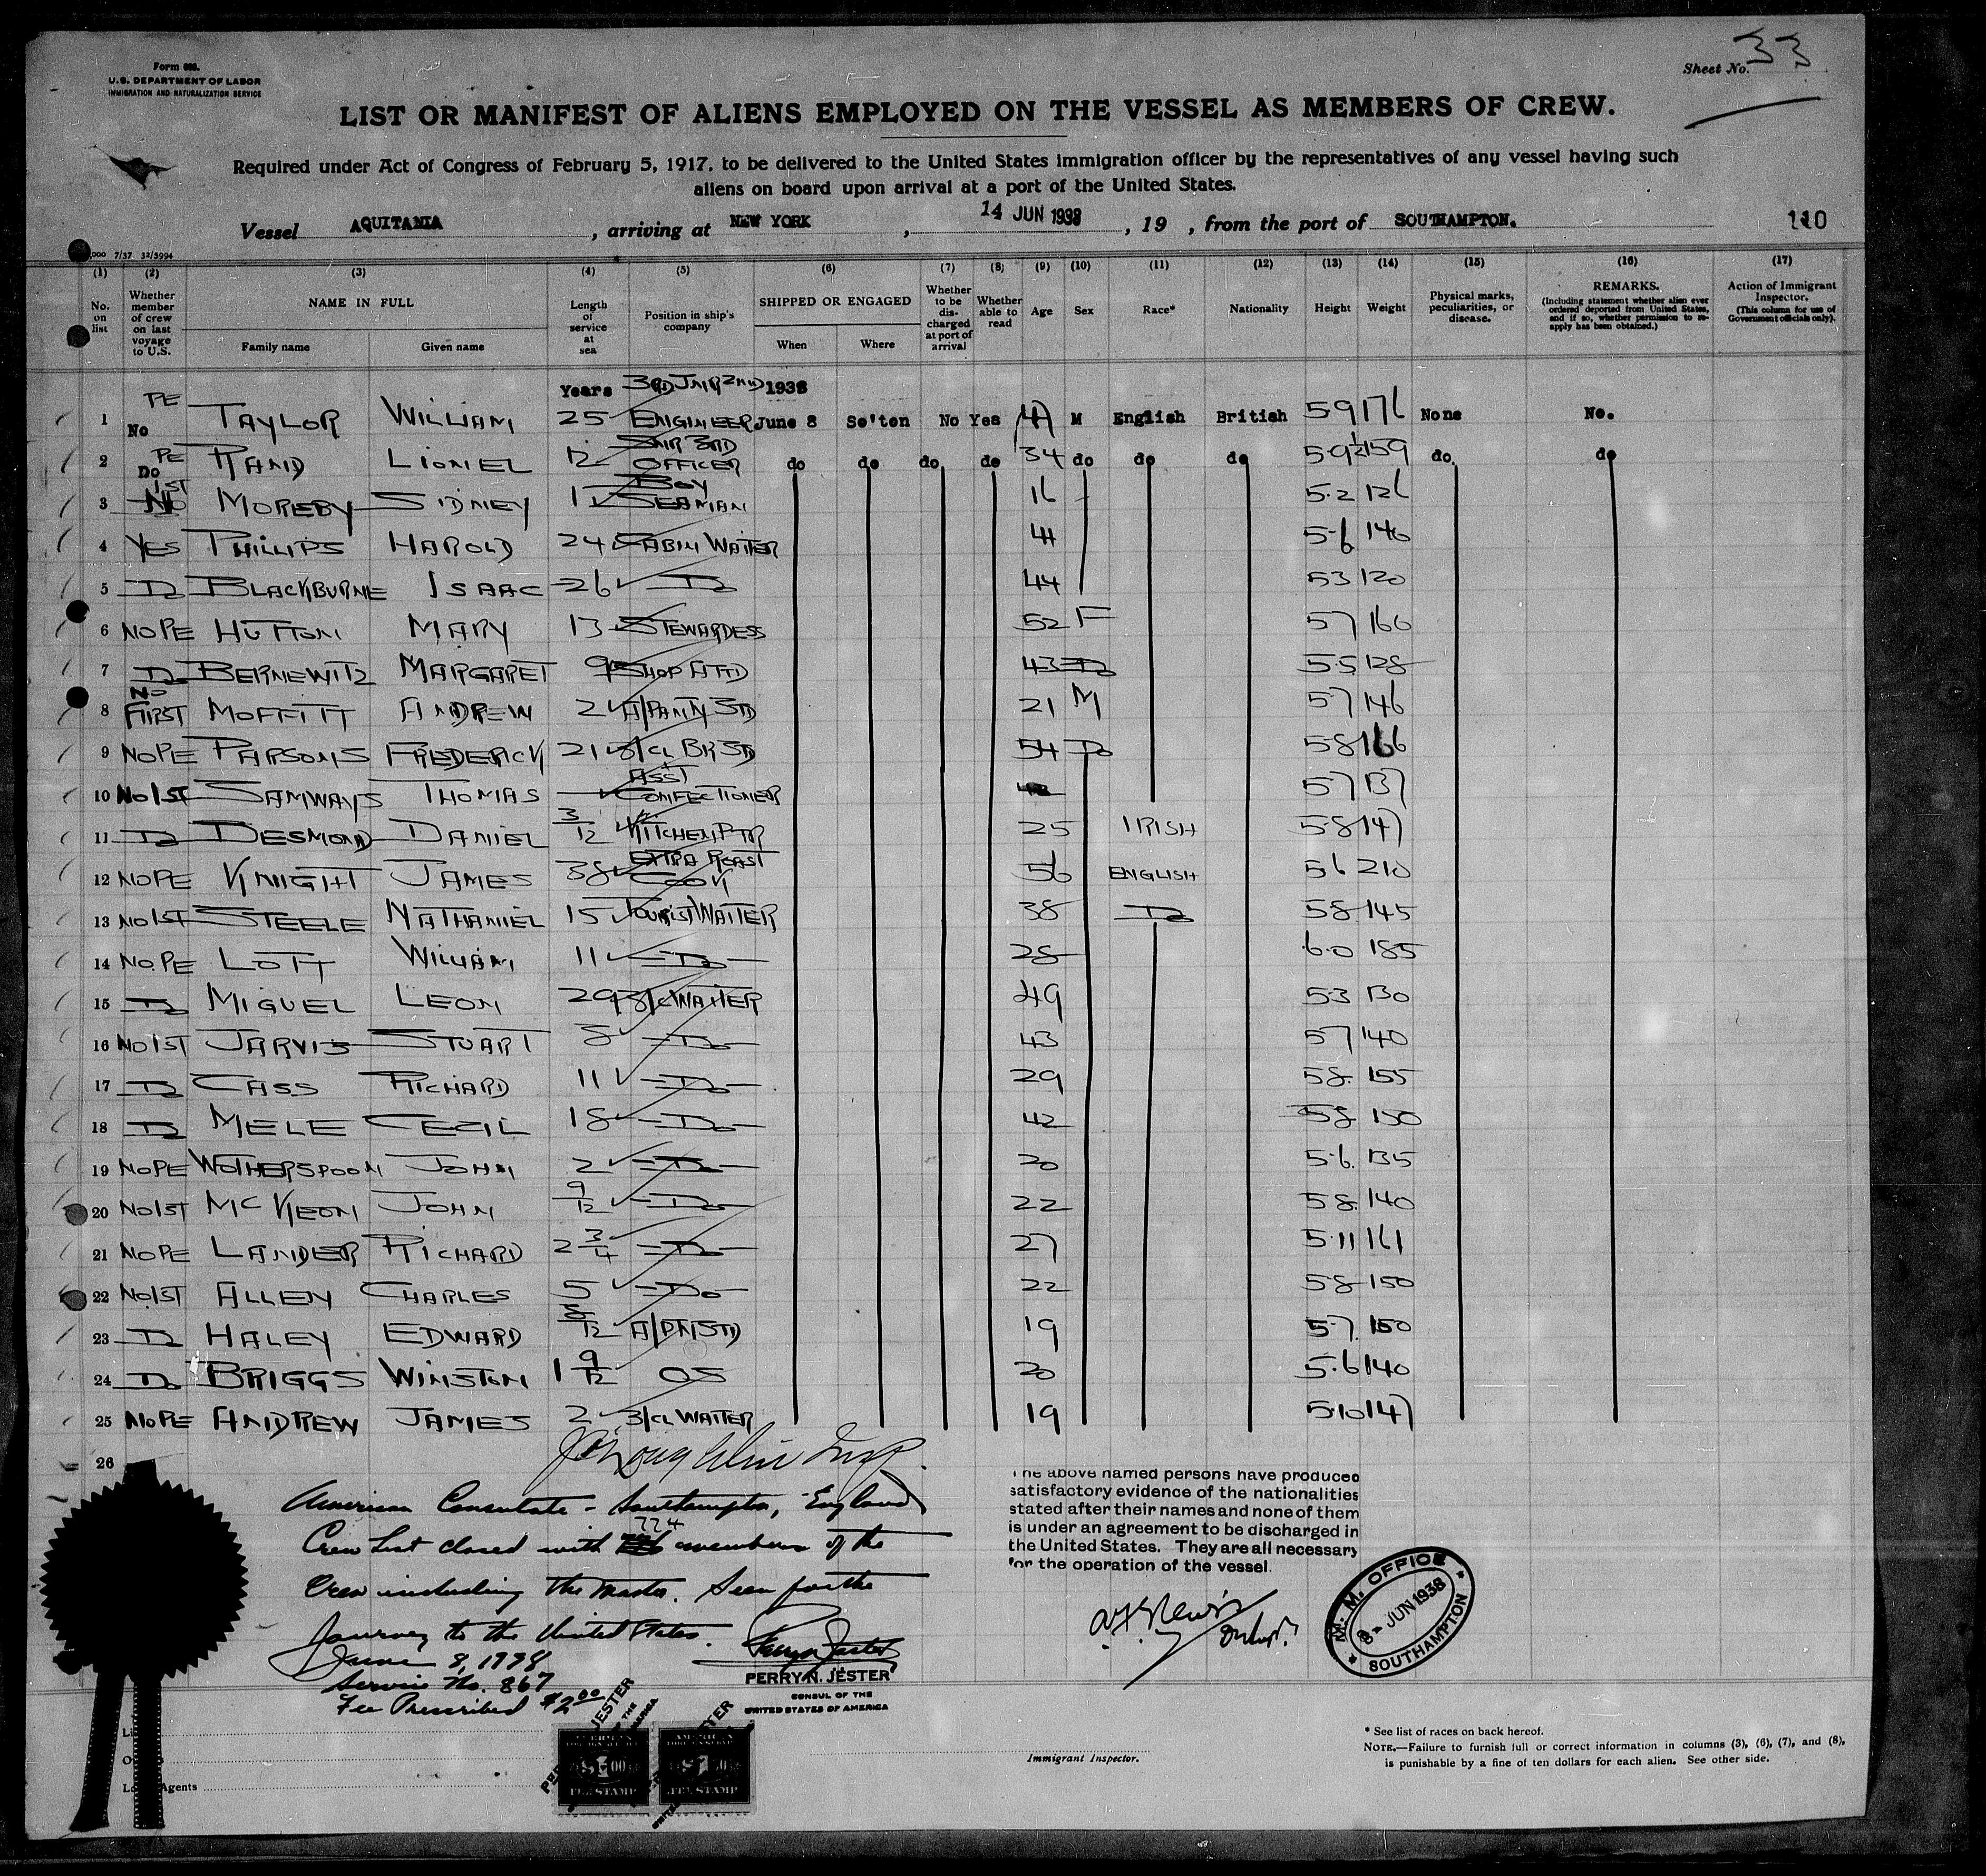 Form 680.
U.S. DEPARTMENT OF LABOR
IMMIGRATION AND NATURALIZATION SERVICE
Sheet No. 33
LIST OR MANIFEST OF ALIENS EMPLOYED ON THE VESSEL AS MEMBERS OF CREW.
Required under Act of Congress of February 5, 1917, to be delivered to the United States immigration officer by the representatives of any vessel having such
aliens on board upon arrival at a port of the United States.
Vessel AQUITANIA, arriving at NEW YORK, 14 JUN 1938, 19 , from the port of SOUTHAMPTON. 110
000 7/37 32/5994
(1) (2) (3) (4) (5) (6) (7) (8) (9) (10) (11) (12) (13) (14) (15) (16) (17)
No. on list Whether member of crew on last voyage to U.S. NAME IN FULL Family name Given name Length of service at sea Position in ship's company SHIPPED OR ENGAGED When Where Whether to be discharged at port of arrival Whether able to read Age Sex Race* Nationality Height Weight Physical marks, peculiarities, or disease. REMARKS. (Including statement whether alien ever ordered deported from United States, and if so, whether permission to reapply has been obtained.) Action of Immigrant Inspector. (This column for use of Government officials only).
Years 1938
1 PE No TAYLOR WILLIAM 25 3RD JNR 2ND ENGINEER June 8 So'ton No Yes 47 M English British 5 9 176 None No.
2 PE Do RAND LIONEL 12 JNR 3RD OFFICER do do do do 34 do do do 5 9½ 159 do. do
3 1ST No MOREBY SIDNEY 1 BOY SEAMAN 16 5.2 126
4 YES PHILLIPS HAROLD 24 CABIN WAITER 41 5-6 146
5 Do BLACKBURNE ISAAC 26 Do 44 5 3 120
6 NO PE HUTTON MARY 13 STEWARDESS 52 F 5 7 166
7 Do BERNEWITZ MARGARET 9 SHOP ATTD 43 Do 5.5 128
8 NO FIRST MOFFITT ANDREW 2 A/PANY STD 21 M 5 7 146
9 NO PE PARSONS FREDERICK 21 3/CL BR STD 54 Do 5 8 166
10 No 1ST SAMWAYS THOMAS ASST CONFECTIONER 5 7 137
11 Do DESMOND DANIEL 3/12 KITCHEN PTR 25 IRISH 5 8 147
12 NO PE KNIGHT JAMES 38 EXTRA ROAST COOK 56 ENGLISH 5 6 210
13 NO 1ST STEELE NATHANIEL 15 TOURIST WAITER 38 Do 5 8 145
14 NO.PE LOTT WILLIAM 11 Do 28 6.0 185
15 Do MIGUEL LEON 29 3/C WAITER 49 5 3 130
16 NO 1ST JARVIS STUART 8 Do 43 5 7 140
17 Do CASS RICHARD 11 Do 29 5 8. 155
18 Do MELE CECIL 18 Do 42 5 8 150
19 NO PE WOTHERSPOON JOHN 2 Do 20 5.6. 135
20 NO 1ST MC KEON JOHN 9/12 Do 22 5 8. 140
21 NO PE LANDER RICHARD 2 3/4 Do 27 5.11 161
22 NO 1ST ALLEN CHARLES 5 Do 22 5 8 150
23 Do HALEY EDWARD 8/12 A/PN STD 19 5 7. 150
24 Do BRIGGS WINSTON 1 9/12 OS 20 5.6 140
25 NO PE ANDREW JAMES 2 3/CL WAITER 19 5.10 147
26
American Consulate - Southampton, England
Crew List closed with 724 members of the
Crew including the Master. Seen for the
Journey to the United States.
June 8, 1938
Service No. 867
Fee Prescribed $2.00
PERRY N. JESTER
CONSUL OF THE
UNITED STATES OF AMERICA
The above named persons have produced
satisfactory evidence of the nationalities
stated after their names and none of them
is under an agreement to be discharged in
the United States. They are all necessary
for the operation of the vessel.
M. M. OFFICE
8 - JUN 1938
SOUTHAMPTON
Agents
Immigrant Inspector.
* See list of races on back hereof.
NOTE.—Failure to furnish full or correct information in columns (3), (6), (7), and (8),
is punishable by a fine of ten dollars for each alien. See other side.